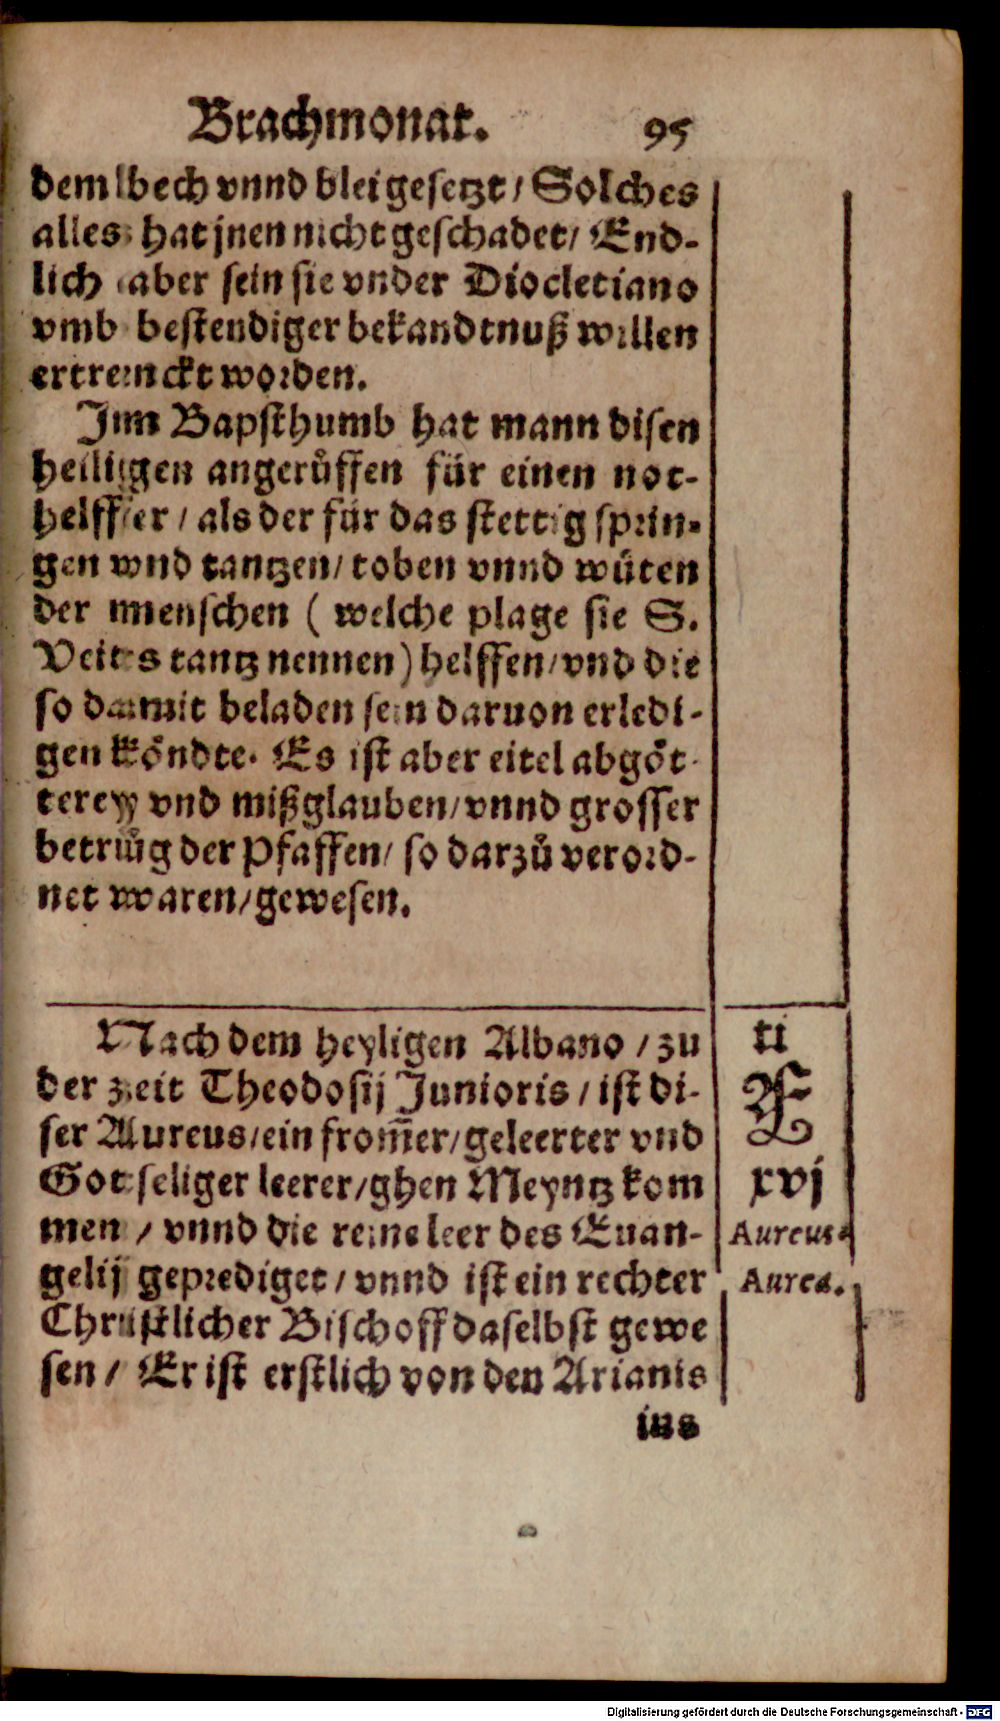 Brachmonat. 95
dem bech vnnd blei gesetzt / Solches
alles hat jnen nicht geschadet / End-
lich aber sein sie vnder Diocletiano
vmb bestendiger bekandtnuß willen
ertrenckt worden.
Inn Bapsthumb hat mann disen
heiligen angerůffen für einen not-
helffer / als der für das stettig sprin-
gen vnd tantzen / toben vnnd wüten
der menschen ( welche plage sie S.
Veits tantz nennen ) helffen / vnd die
so damit beladen sein daruon erledi-
gen köndte. Es ist aber eitel abgöt-
terey vnd mißglauben / vnnd grosser
betrůg der Pfaffen / so darzů verord-
net waren / gewesen.
Nach dem heyligen Albano / zu
der zeit Theodosij Junioris / ist di-
ser Aureus / ein from̃er / geleerter vnd
Gotseliger leerer / ghen Meyntz kom
men / vnnd die reine leer des Euan-
gelij geprediget / vnnd ist ein rechter
Christlicher Bischoff daselbst gewe
sen / Er ist erstlich von den Arianis
ins
ti
E
xvj
Aureus.
Aurea.
Digitalisierung gefördert durch die Deutsche Forschungsgemeinschaft - DFG